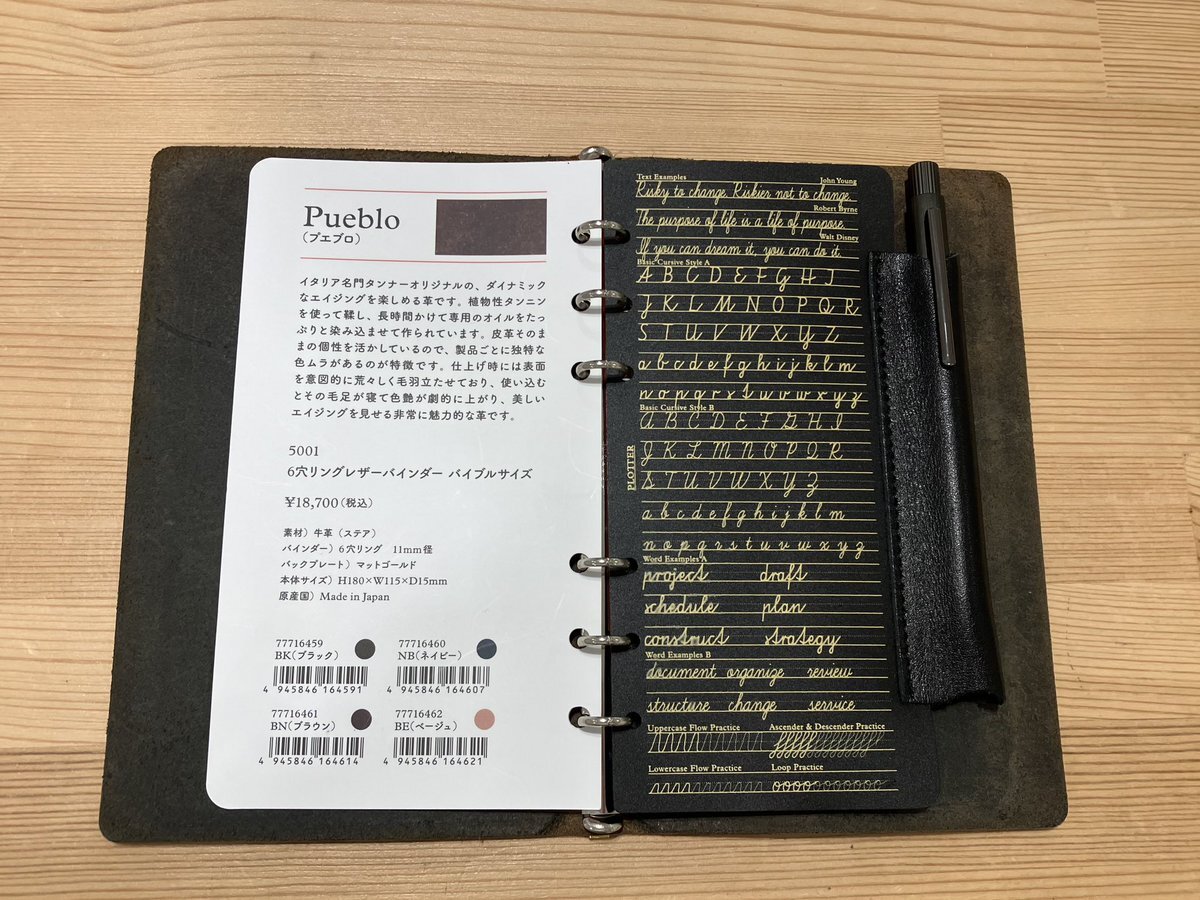 Pueblo
(プエブロ)
イタリア名門タンナーオリジナルの、ダイナミック
なエイジングを楽しめる革です。植物性タンニン
を使って鞣し、長時間かけて専用のオイルをたっ
ぷりと染み込ませて作られています。皮革そのま
まの個性を活かしているので、製品ごとに独特な
色ムラがあるのが特徴です。仕上げ時には表面
を意図的に荒々しく毛羽立たせており、使い込む
とその毛足が寝て色艶が劇的に上がり、美しい
エイジングを見せる非常に魅力的な革です。
5001
6穴リングレザーバインダー バイブルサイズ
¥18,700(税込)
素材）牛革（ステア）
バインダー）6穴リング 11mm径
バックプレート）マットゴールド
本体サイズ）H180×W115×D15mm
原産国）Made in Japan
77716459
BK(ブラック)
4 945846 164591
77716460
NB(ネイビー)
4 945846 164607
77716461
BN(ブラウン)
4 945846 164614
77716462
BE(ベージュ)
4 945846 164621
Text Examples John Young
Risky to change. Riskier not to change.
Robert Byrne
The purpose of life is a life of purpose.
Walt Disney
If you can dream it, you can do it.
Basic Cursive Style A
A B C D E F G H I
J K L M N O P Q R
S T U V W X Y Z
a b c d e f g h i j k l m
n o p q r s t u v w x y z
Basic Cursive Style B
A B C D E F G H I
J K L M N O P Q R
S T U V W X Y Z
a b c d e f g h i j k l m
n o p q r s t u v w x y z
PLOTTER
Word Examples A
project draft
schedule plan
construct strategy
Word Examples B
document organize review
structure change service
Uppercase Flow Practice Ascender & Descender Practice
Lowercase Flow Practice Loop Practice